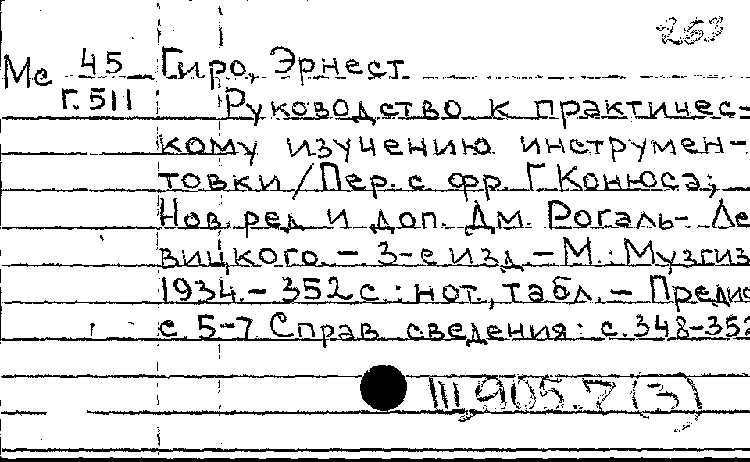 263
Мс 45 Гиро, Эрнест
Г.511 Руководство к практичес-
кому изучению инструмен-
товки / Пер. с фр. Г. Конюса;
Нов. ред и доп. Дм. Рогаль- Ле
вицкого. - 3-е изд. - М.: Музгиз
1934. - 352 с.: нот., табл. - Предис
с. 5-7 Справ сведения: с. 348-352
III, 905.7 (3)